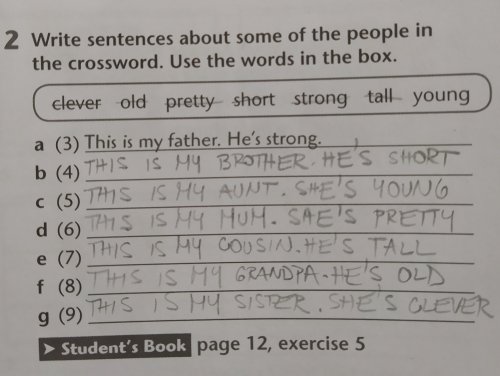 2 Write sentences about some of the people in
the crossword. Use the words in the box.
clever old pretty short strong tall young
a (3) This is my father. He's strong.
b (4) THIS IS MY BROTHER. HE'S SHORT
c (5) THIS IS MY AUNT. SHE'S YOUNG
d (6) THIS IS MY MUM. SHE'S PRETTY
e (7) THIS IS MY COUSIN. HE'S TALL
f (8) THIS IS MY GRANDPA. HE'S OLD
g (9) THIS IS MY SISTER. SHE'S CLEVER
➤ Student's Book page 12, exercise 5